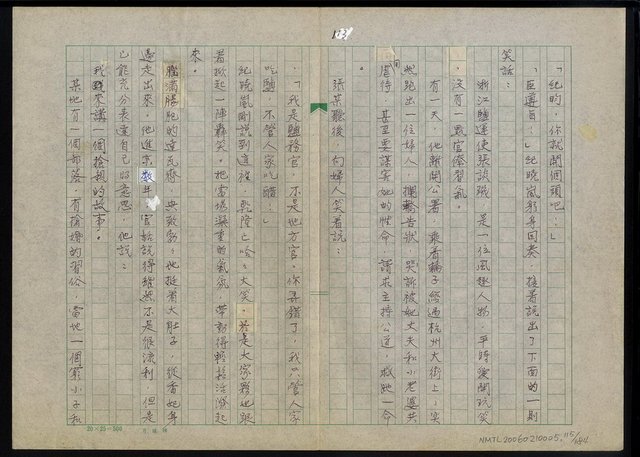 173
「紀昀，你就開個頭吧！」
「臣遵旨！」紀曉嵐躬身回奏，接着說出了下面的一則
笑話：
浙江鹽運使張談璣，是一位風趣人物，平時愛開玩笑
，沒有一點官僚習氣。
有一天，他辦開公署，乘着轎子經過杭州大街上，突
然跑出一位婦人，攔轎告狀，哭訴被她丈夫和小老婆共
虐待，甚至要謀害她的性命，請求主持公道，救她一命
。
張某聽後，向婦人笑着說：
「我是鹽務官，不是地方官，你弄錯了，我只管人家
吃鹽，不管人家吃醋！」
紀曉嵐剛說到這裡，乾隆已哈哈大笑，於是大家夥也跟
着掀起一陣轟笑。把當場凝重的氣氛，帶動得輕鬆活潑起
來。
腦滿腸肥的達瓦齊，興致勃勃地挺着大肚子，從香妃身
邊走出來，他進京數年，官話說得雖然不是很流利，但是
已能充分表達自己的意思，他說：
我來講一個搶親的故事。
某地有一個部落，有搶婚的習俗，當地一個窮小子和
20×25=500
NMTL20060210005, 175/484